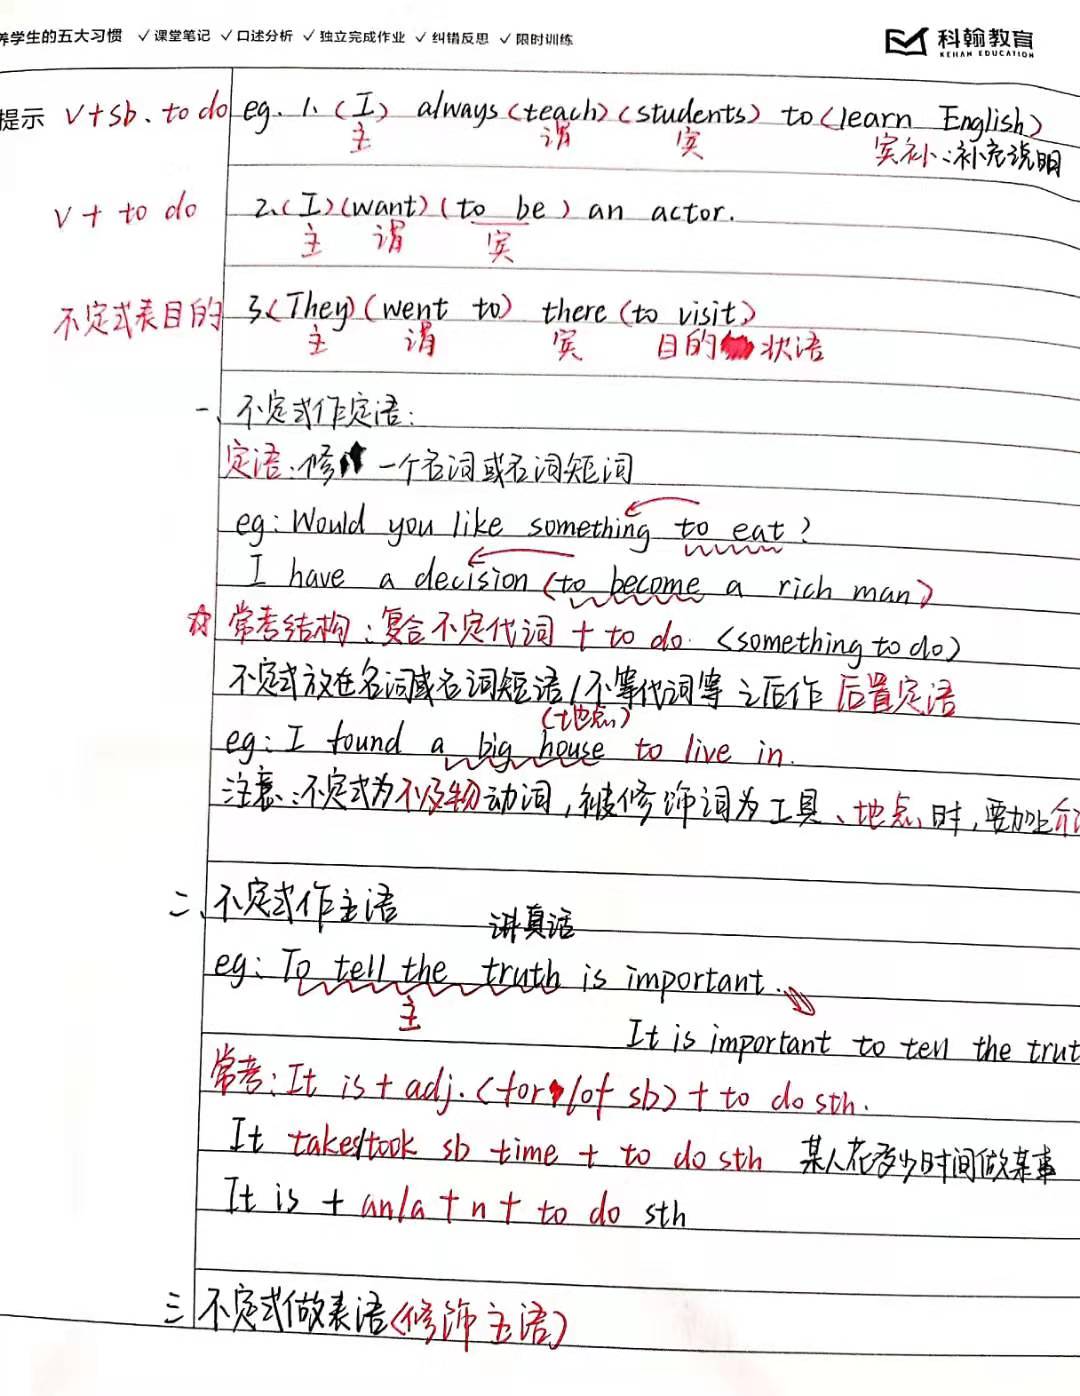 养学生的五大习惯 ✓课堂笔记 ✓口述分析 ✓独立完成作业 ✓纠错反思 ✓限时训练
科翰教育
KEHAN EDUCATION
提示 V+sb. to do eg. 1. (I) always (teach) (students) to (learn English)
主 谓 宾 宾补:补充说明
V + to do 2.(I)(want)(to be) an actor.
主 谓 宾
不定式表目的 3.(They)(went to) there (to visit)
主 谓 宾 目的 状语
一、不定式作定语:
定语:修 一个名词或名词短词
eg: Would you like something to eat?
I have a decision (to become a rich man)
☆ 常考结构:复合不定代词 + to do. (something to do)
不定式放在名词或名词短语/不等代词等 之后作 后置定语
(地点)
eg: I found a big house to live in.
注意:不定式为不及物动词,被修饰词为工具、地点时,要加上介
二、不定式作主语
讲真话
eg: To tell the truth is important.
主
It is important to tell the trut
常考: It is + adj. (for/of sb) + to do sth.
It takes/took sb time + to do sth 某人花多少时间做某事
It is + an/a + n + to do sth
三 不定式做表语(修饰主语)